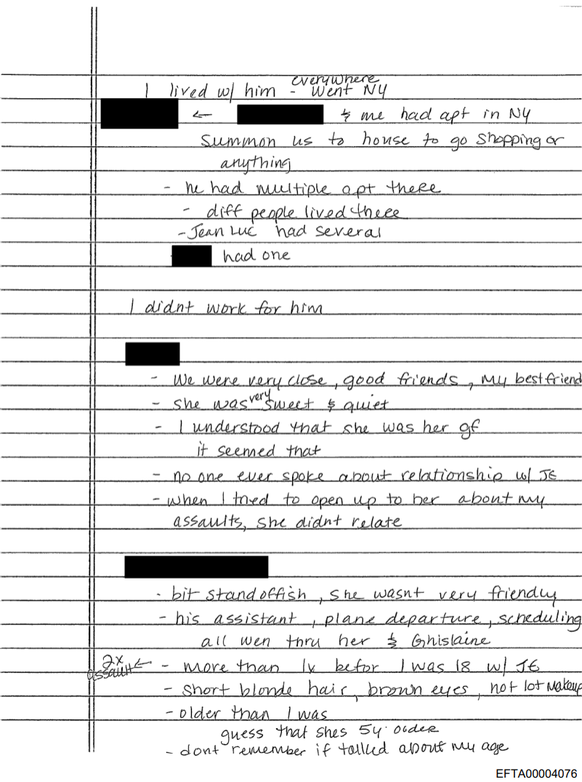 everywhere
I lived w/ him - went NY
← & me had apt in NY
Summon us to house to go shopping or
anything
- he had multiple apt there
- diff people lived there
- Jean Luc had several
had one
I didnt work for him
- We were very close, good friends, my best friend
- she was very sweet & quiet
- I understood that she was her gf
it seemed that
- no one ever spoke about relationship w/ JE
- when I tried to open up to her about my
assaults, she didnt relate
- bit standoffish, she wasnt very friendly
- his assistant, plane departure, scheduling
all wen thru her & Ghislaine
2x
assault ← - more than 1x befor I was 18 w/ JE
- short blonde hair, brown eyes, not lot makeup
- older than I was
guess that shes 5y older
- dont remember if talked about my age
EFTA00004076